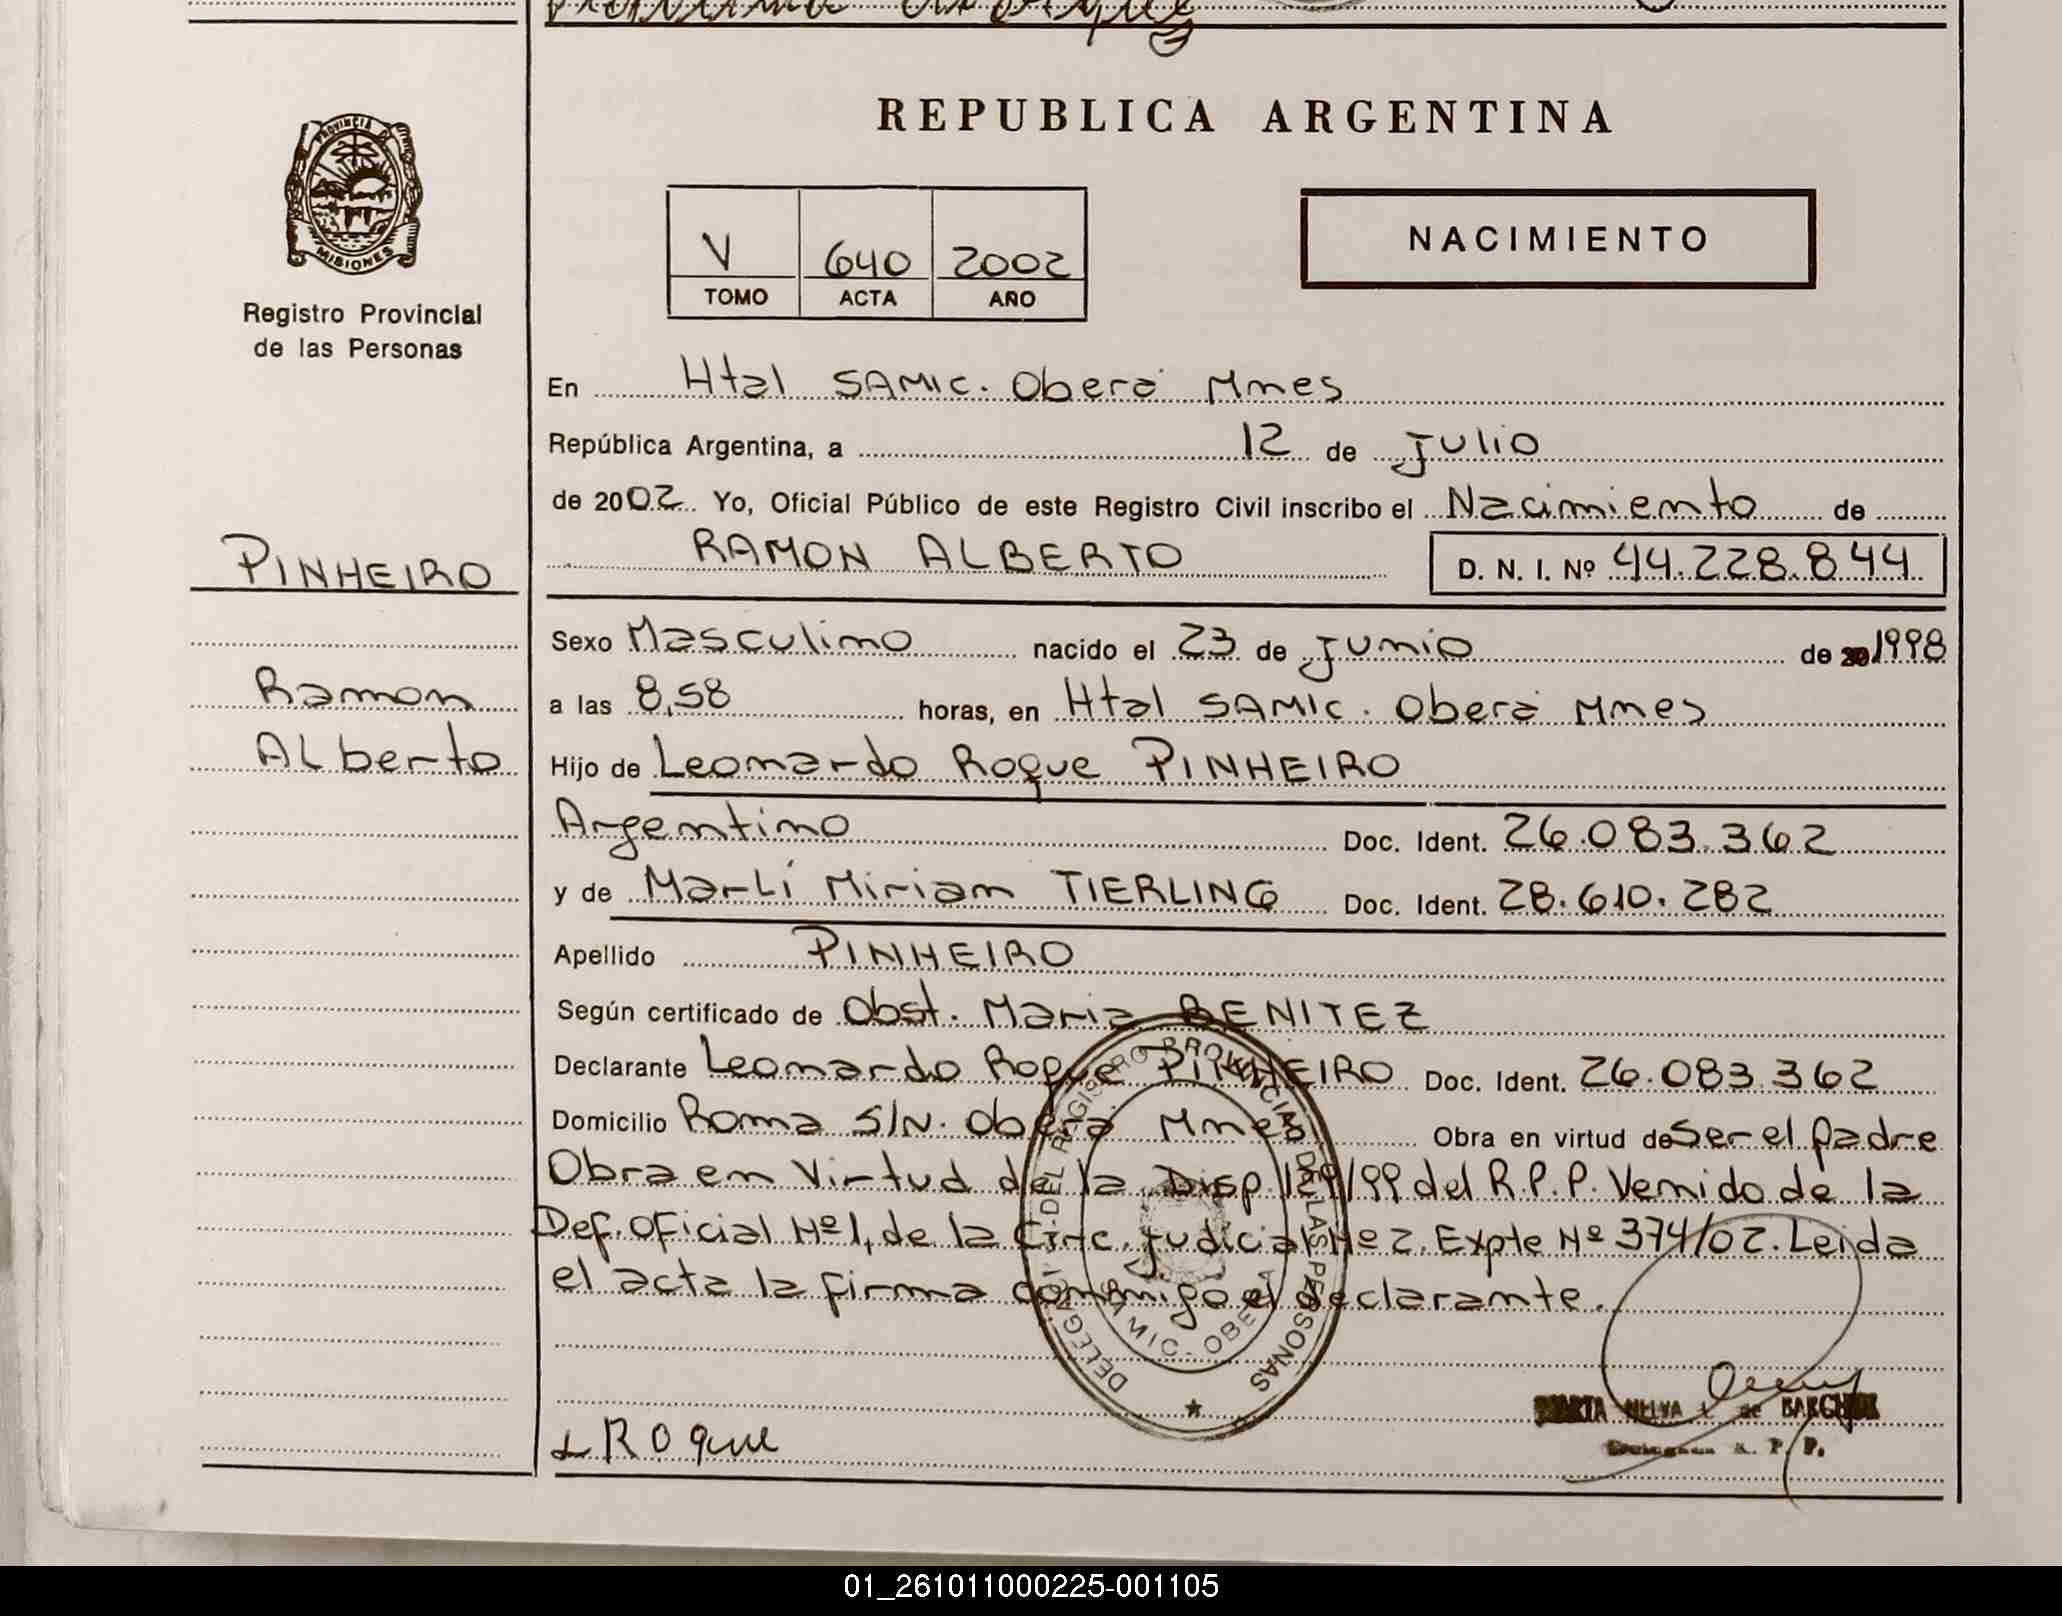 REPUBLICA ARGENTINA
PROVINCIA DE
MISIONES
Registro Provincial
de las Personas
V 640 2002
TOMO ACTA AÑO
NACIMIENTO
En Htal SAMIC. Oberá Mnes
República Argentina, a 12 de Julio
de 2002 Yo, Oficial Público de este Registro Civil inscribo el Nacimiento de
PINHEIRO
RAMON ALBERTO D. N. I. Nº 44.228.844
Sexo Masculino nacido el 23 de Junio de 1998
Ramon
a las 8,58 horas, en Htal SAMIC. Oberá Mnes
Alberto
Hijo de Leonardo Roque PINHEIRO
Argentino Doc. Ident. 26.083.362
y de Marlí Miriam TIERLING Doc. Ident. 28.610.282
Apellido PINHEIRO
Según certificado de Obst. Maria BENITEZ
Declarante Leonardo Roque PINHEIRO Doc. Ident. 26.083.362
Domicilio Roma S/N. Oberá Mnes Obra en virtud de Ser el padre
Obra en Virtud de la Disp. 129/99 del R.P.P. Venido de la
Def. Oficial Nº1, de la Circ. Judicial Nº 2. Expte Nº 374/02. Leida
el acta la firma conmigo el declarante.
DEL REGISTRO PROVINCIAL DE LAS PERSONAS
SAMIC - OBERA
L Roque
R. P. P.
01_261011000225-001105